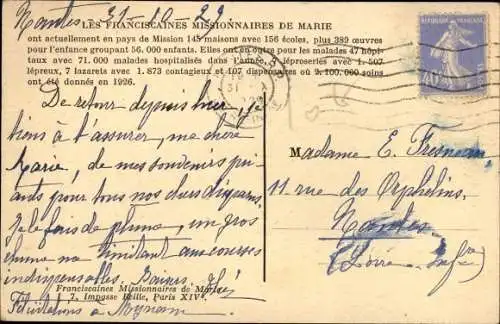 Nantes 31-10-29
LES FRANCISCAINES MISSIONNAIRES DE MARIE
ont actuellement en pays de Mission 145 maisons avec 156 écoles, plus 389 œuvres
pour l'enfance groupant 56.000 enfants. Elles ont en outre pour les malades 47 hôpi-
taux avec 71.000 malades hospitalisés dans l'année, léproseries avec 1.507
lépreux, 7 lazarets avec 1.873 contagieux et 107 dispensaires où 2.100.000 soins
ont été donnés en 1926.
RÉPUBLIQUE FRANÇAISE
40c
De retour depuis hier, je
tiens à t'assurer, ma chère
Marie, de mes souvenirs pri-
ants pour tous nos chers disparus.
Je le fais de plume, un gros
rhume me limitant aux courses
indispensables. Baisers.
Félicitations à
Franciscaines Missionnaires de Marie
7, Impasse Reille, Paris XIVe
Madame E. Fresneau
11 rue des Orphelins
Nantes
(Loire-Infre)